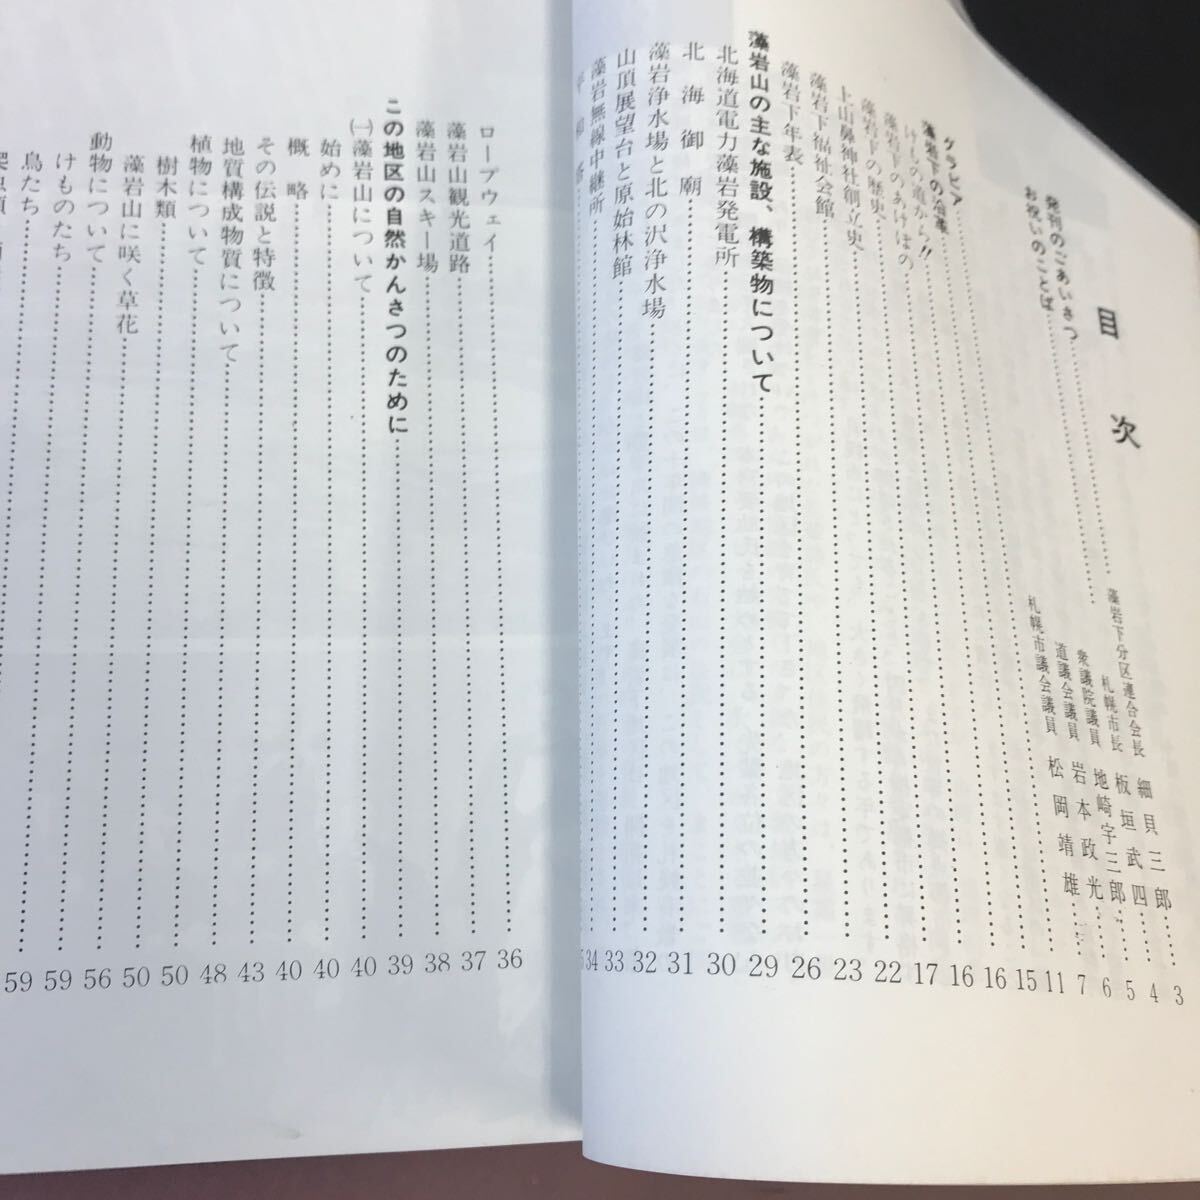 目次
発刊のごあいさつ……藻岩下分区連合会長 細貝三郎……3
お祝いのことば……札幌市長 板垣武四……4
衆議院議員 地崎宇三郎……5
道議会議員 岩本政光……6
札幌市議会議員 松岡靖雄……7
グラビア……11
藻岩下の沿革……15
けもの道から!!……16
藻岩下のあけぼの……16
藻岩下の歴史……17
上山鼻神社創立史……22
藻岩下福祉会館……23
藻岩下年表……26
藻岩山の主な施設、構築物について……29
北海道電力藻岩発電所……30
北海御廟……31
藻岩浄水場と北の沢浄水場……32
山頂展望台と原始林館……33
藻岩無線中継所……34
平和塔……
ロープウェイ……36
藻岩山観光道路……37
藻岩山スキー場……38
この地区の自然かんさつのために……39
(一)藻岩山について……40
始めに……40
概略……40
その伝説と特徴……43
地質構成物質について……48
植物について……50
樹木類……50
藻岩山に咲く草花……56
動物について……59
けものたち……59
鳥たち……